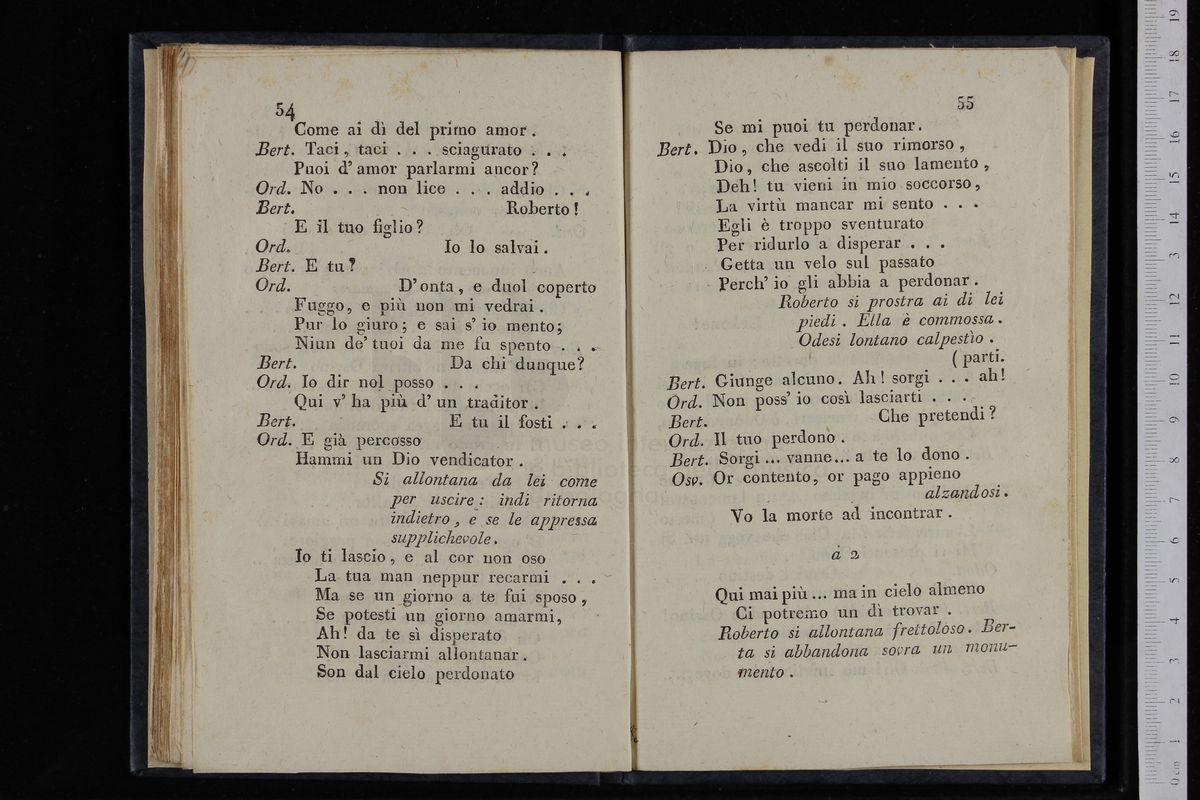 54
Come ai dì del primo amor.
Bert. Taci, taci . . . sciagurato . . .
Puoi d' amor parlarmi ancor?
Ord. No . . . non lice . . . addio . . .
Bert. Roberto!
E il tuo figlio?
Ord. Io lo salvai.
Bert. E tu?
Ord. D' onta, e duol coperto
Fuggo, e più non mi vedrai.
Pur lo giuro; e sai s' io mento;
Niun de' tuoi da me fu spento . . .
Bert. Da chi dunque?
Ord. Io dir nol posso . . .
Qui v' ha più d' un traditor.
Bert. E tu il fosti . . .
Ord. E già percosso
Hammi un Dio vendicator.
Si allontana da lei come
per uscire: indi ritorna
indietro, e se le appressa
supplichevole.
Io ti lascio, e al cor non oso
La tua man neppur recarmi . . .
Ma se un giorno a te fui sposo,
Se potesti un giorno amarmi,
Ah! da te sì disperato
Non lasciarmi allontanar.
Son dal cielo perdonato
55
Se mi puoi tu perdonar.
Bert. Dio, che vedi il suo rimorso,
Dio, che ascolti il suo lamento,
Deh! tu vieni in mio soccorso,
La virtù mancar mi sento . . .
Egli è troppo sventurato
Per ridurlo a disperar . . .
Getta un velo sul passato
Perch' io gli abbia a perdonar.
Roberto si prostra ai di lei
piedi. Ella è commossa.
Odesi lontano calpestìo.
(parti.
Bert. Giunge alcuno. Ah! sorgi . . . ah!
Ord. Non poss' io così lasciarti . . .
Bert. Che pretendi?
Ord. Il tuo perdono.
Bert. Sorgi ... vanne... a te lo dono.
Osv. Or contento, or pago appieno
alzandosi.
Vo la morte ad incontrar.
à 2
Qui mai più ... ma in cielo almeno
Ci potremo un dì trovar.
Roberto si allontana frettoloso. Ber-
ta si abbandona sovra un monu-
mento.